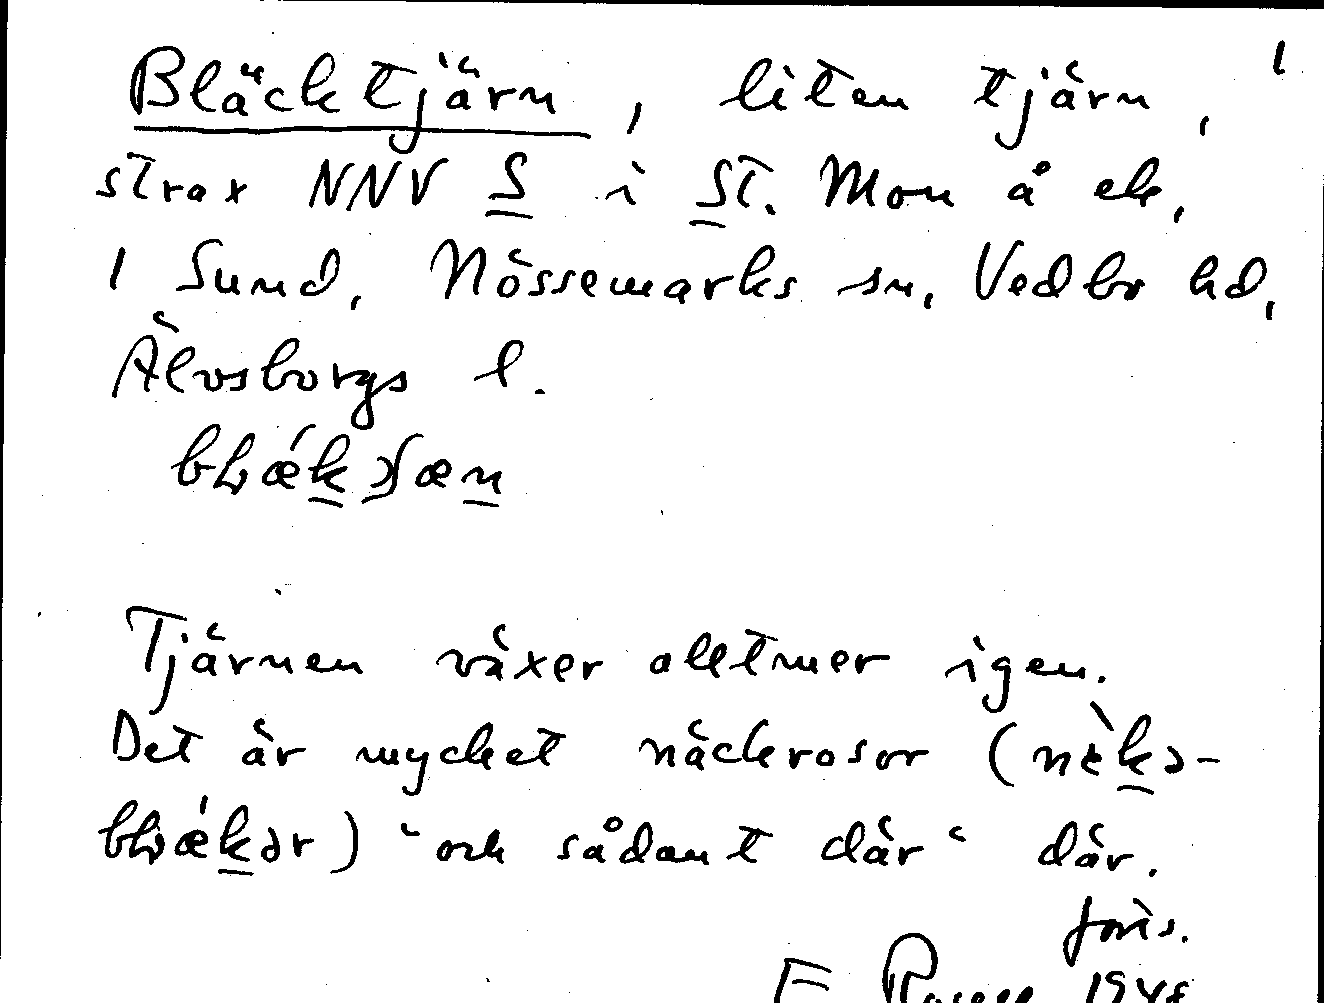 Bläcktjärn, liten tjärn, 1
strax NNV S i St. Mon å ek,
1 Sund, Nössemarks sn, Vedbo hd,
Älvsborgs l.
Tjärnen växer alltmer igen.
Det är mycket näckrosor (
) "och sådant där" där.
1948